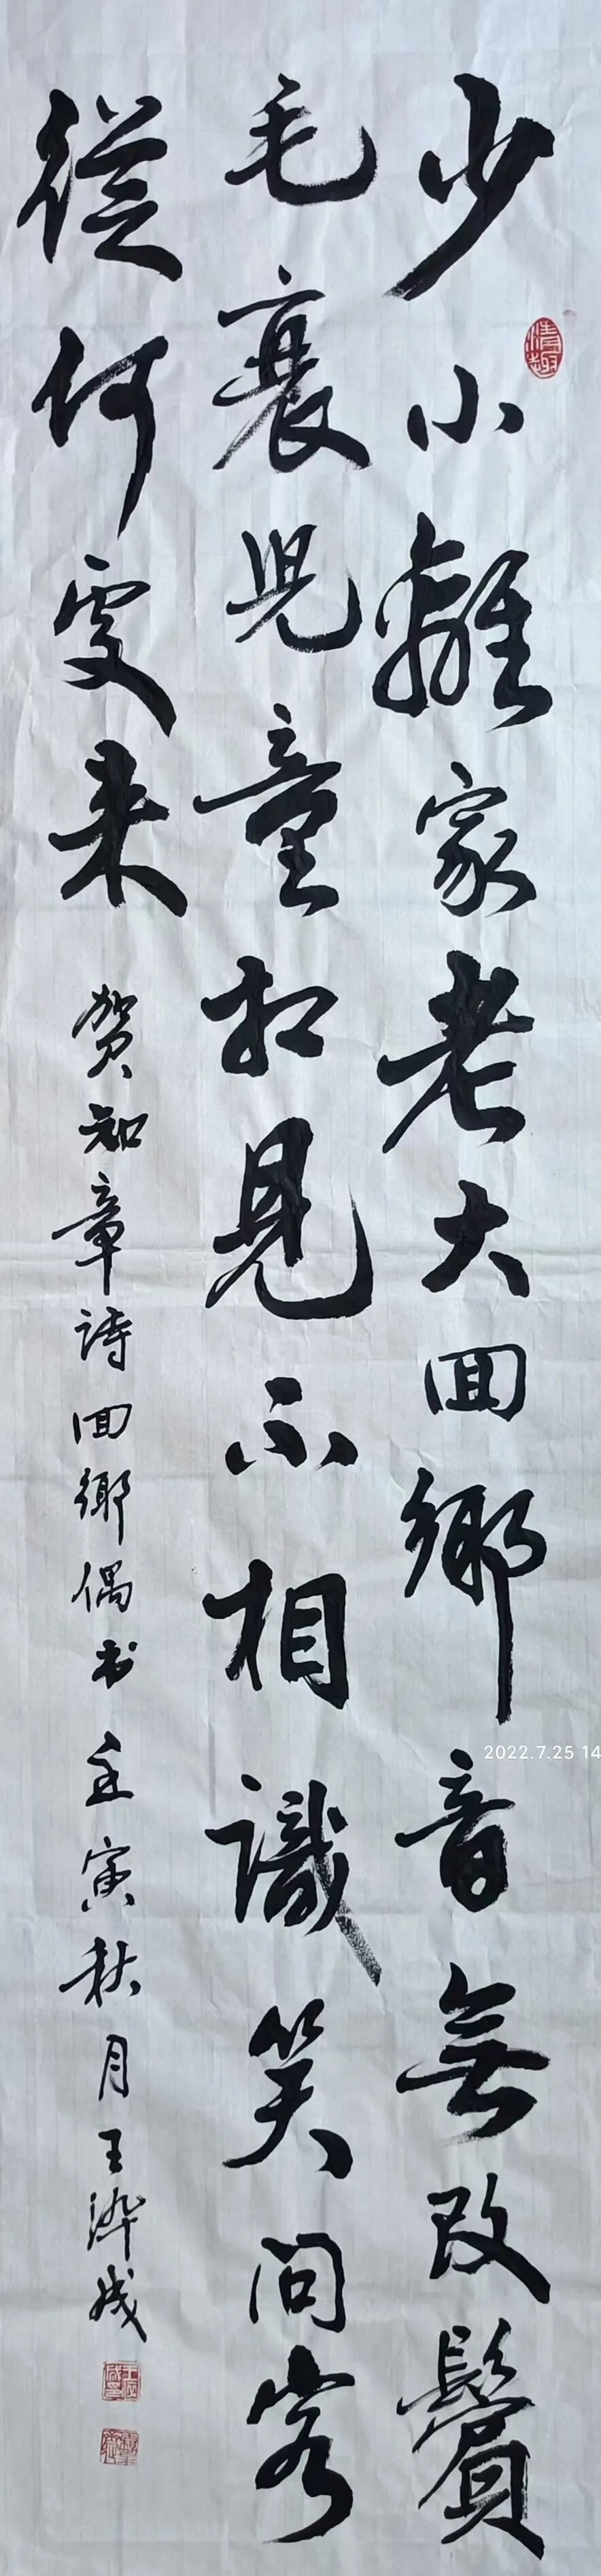 少小離家老大回鄉音無改鬢
毛衰児童相見不相識笑問客
從何處来
贺知章詩回鄉偶书壬寅秋月王
情趣
2022.7.25 14